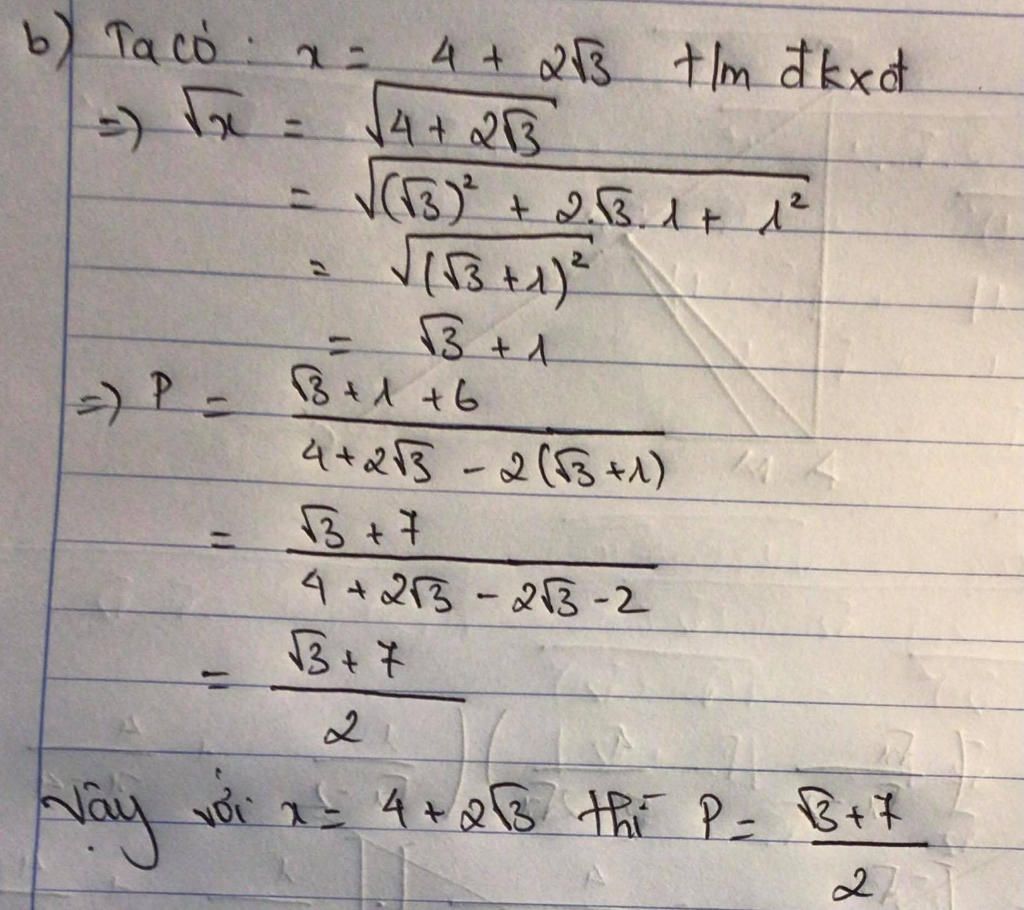 b) Ta có : x = 4 + 2√3 t/m đkxđ
=> √x = √(4 + 2√3)
= √((√3)² + 2.√3.1 + 1²)
= √((√3 + 1)²)
= √3 + 1
=> P = (√3 + 1 + 6) / (4 + 2√3 - 2(√3 + 1))
= (√3 + 7) / (4 + 2√3 - 2√3 - 2)
= (√3 + 7) / 2
Vậy với x = 4 + 2√3 thì P = (√3 + 7) / 2